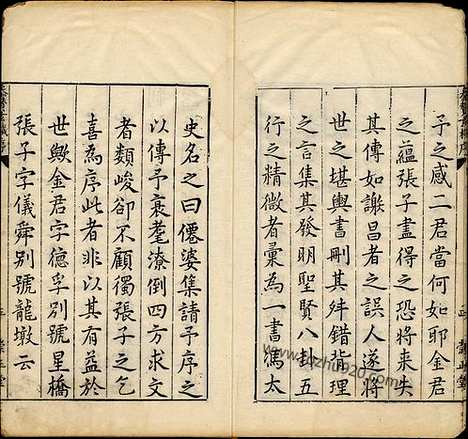 子之感二君當何如耶金君
之蘊張子盡得之恐將來失
其傳如謝昌者之誤人遂將
世之堪輿書刪其舛錯背理
之言集其發明聖賢八卦五
行之精微者彙為一書馮太
史名之曰僊婆集請予序之
以傳予衰耄潦倒四方求文
者類峻卻不顧獨張子之乞
喜為序此者非以其有益於
世歟金君字德孚別號星橋
張子字儀舜別號龍墩云